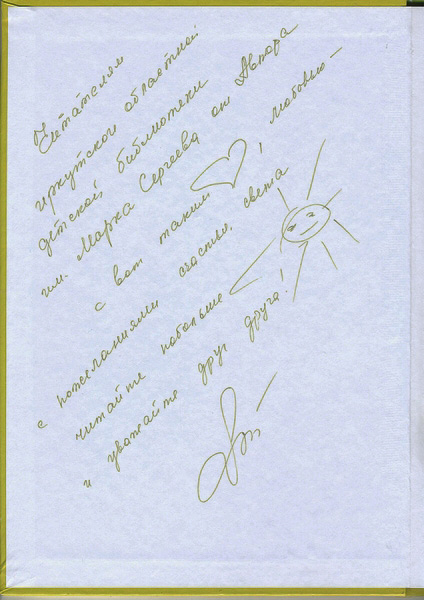 Читателям
иркутской областной
детской библиотеки
им. Марка Сергеева от Автора
с вот таким ! любовью –
с пожеланиями счастья, света
читайте побольше
и уважайте друг друга!